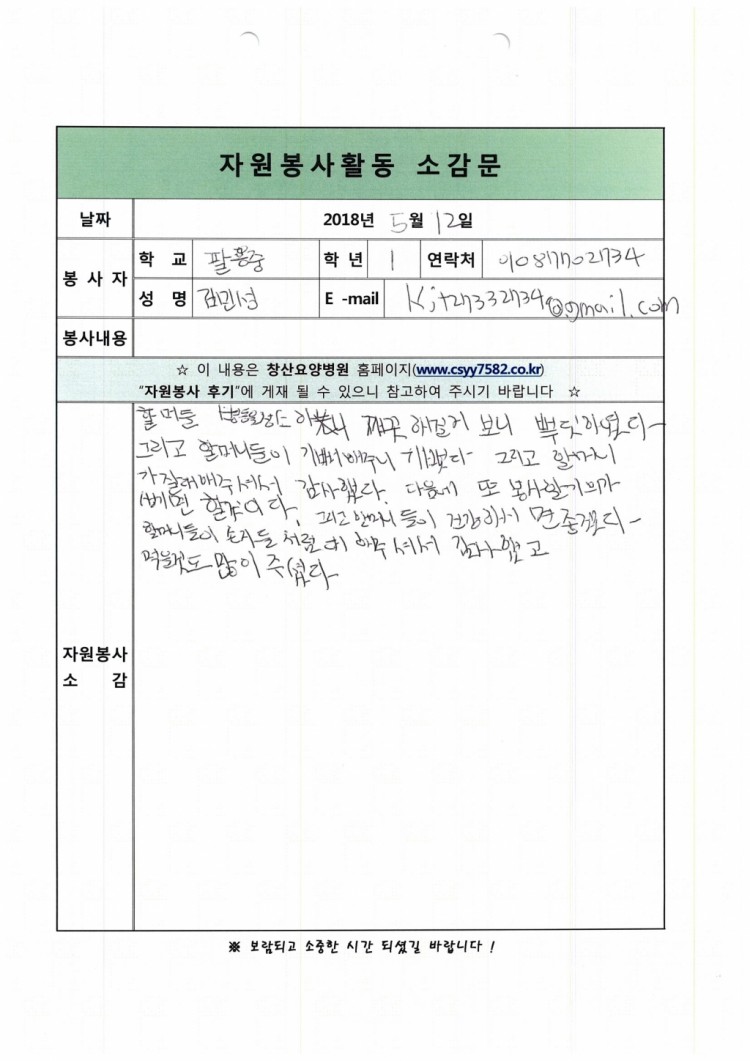 자원봉사활동 소감문
날짜 2018년 5월 12일
봉 사 자
학 교 팔룡중 학 년 1 연락처 01087702734
성 명 김민성 E -mail kjt27332734@gmail.com
봉사내용
☆ 이 내용은 창산요양병원 홈페이지(www.csyy7582.co.kr)
"자원봉사 후기"에 게재 될 수 있으니 참고하여 주시기 바랍니다 ☆
자원봉사
소 감
할머들 하니 깨끗 하걸거 보니 뿌듯하였다
그리고 할머니들이 기뻐해주니 기뻤다 그리고 할머니
가 잘해주셔서 감사했다. 다음에 또 봉사할기회가
면 할것이다, 그리고 할머니들이 건강해서 면 좋겠다
할머니들이 손자들 처럼 해주셔서 감사했고
먹을것도 많이 주셨다
※ 보람되고 소중한 시간 되셨길 바랍니다 !